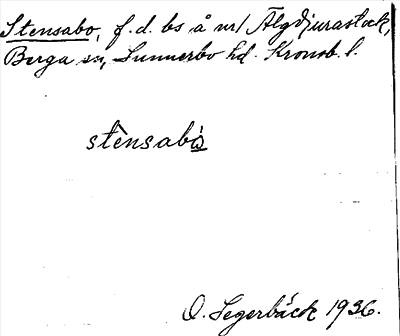 Stensabo, f.d. bs å nr 1 Älgdjurastock,
Berga sn, Sunnerbo hd. Kronob. l.
stènsabó̀s
O. Segerbäck 1936.